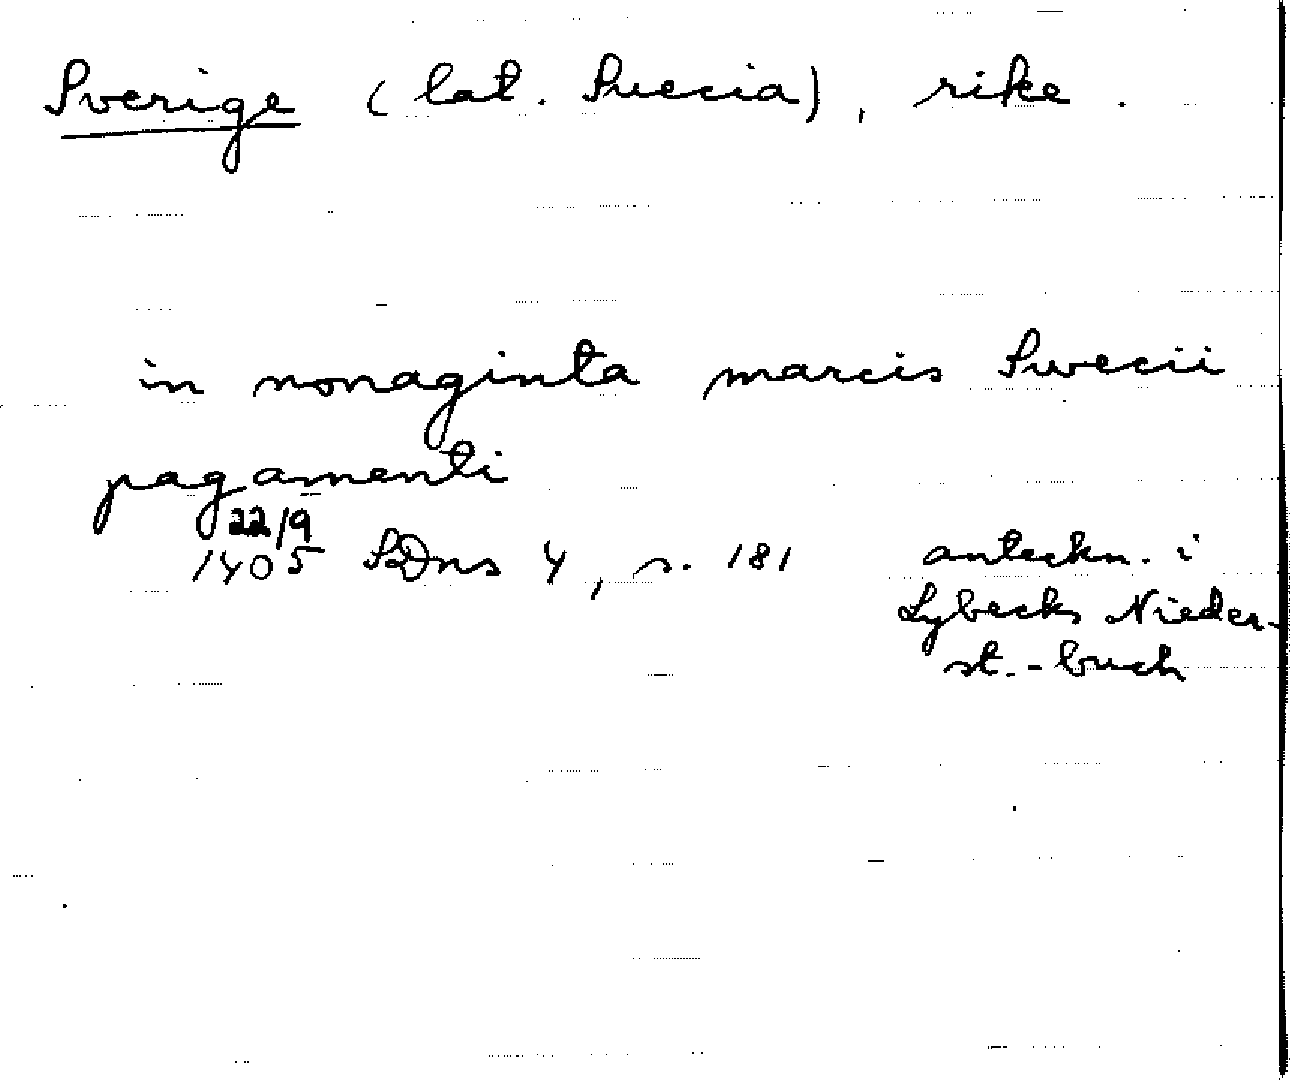 Sverige (lat. Suecia), rike.
in nonaginta marcis Swecii
pagamenti
22/9
1405 SDns 4, s. 181 anteckn. i
Lybecks Nieder-
st.-buch